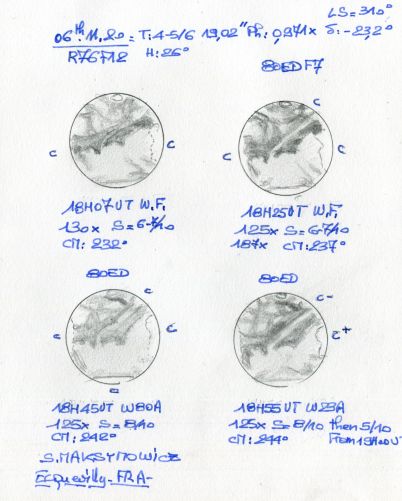 LS=310°
06th.11.20= T:4-5/6 19,02" Ph: 0,971x δ:-23,2°
R76F12 H:26°
80ED F7
C C C C
18H07UT W.F. 18H25UT W.F.
130x S=6-7/10 125x S=6-7/10
CM: 232° 187x CM:237°
80ED 80ED
C C C C- C+
18H45UT W80A 18H55UT W23A
125x S=8/10 125x S=8/10 then 5/10
CM: 242° CM: 244° From 19H00UT
S.MAKSYMOWICZ
Ecquevilly-FRA-